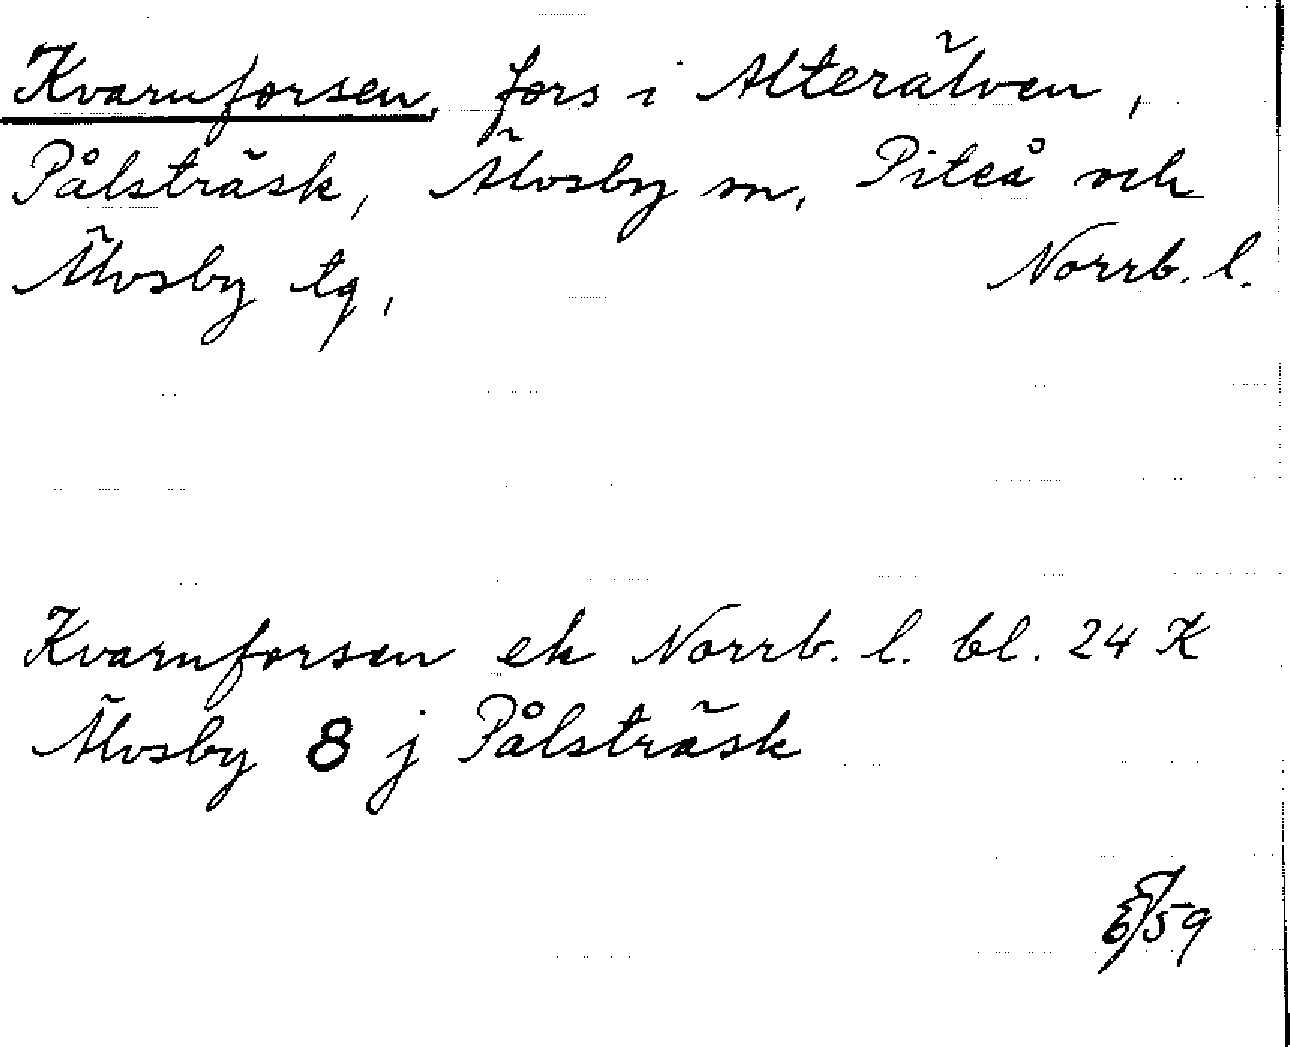 Kvarnforsen, fors i Alterälven,
Pålsträsk, Älvsby sn, Piteå och
Älvsby tg, Norrb. l.
Kvarnforsen ek Norrb. l. bl. 24 K
Älvsby 8 j Pålsträsk
/59